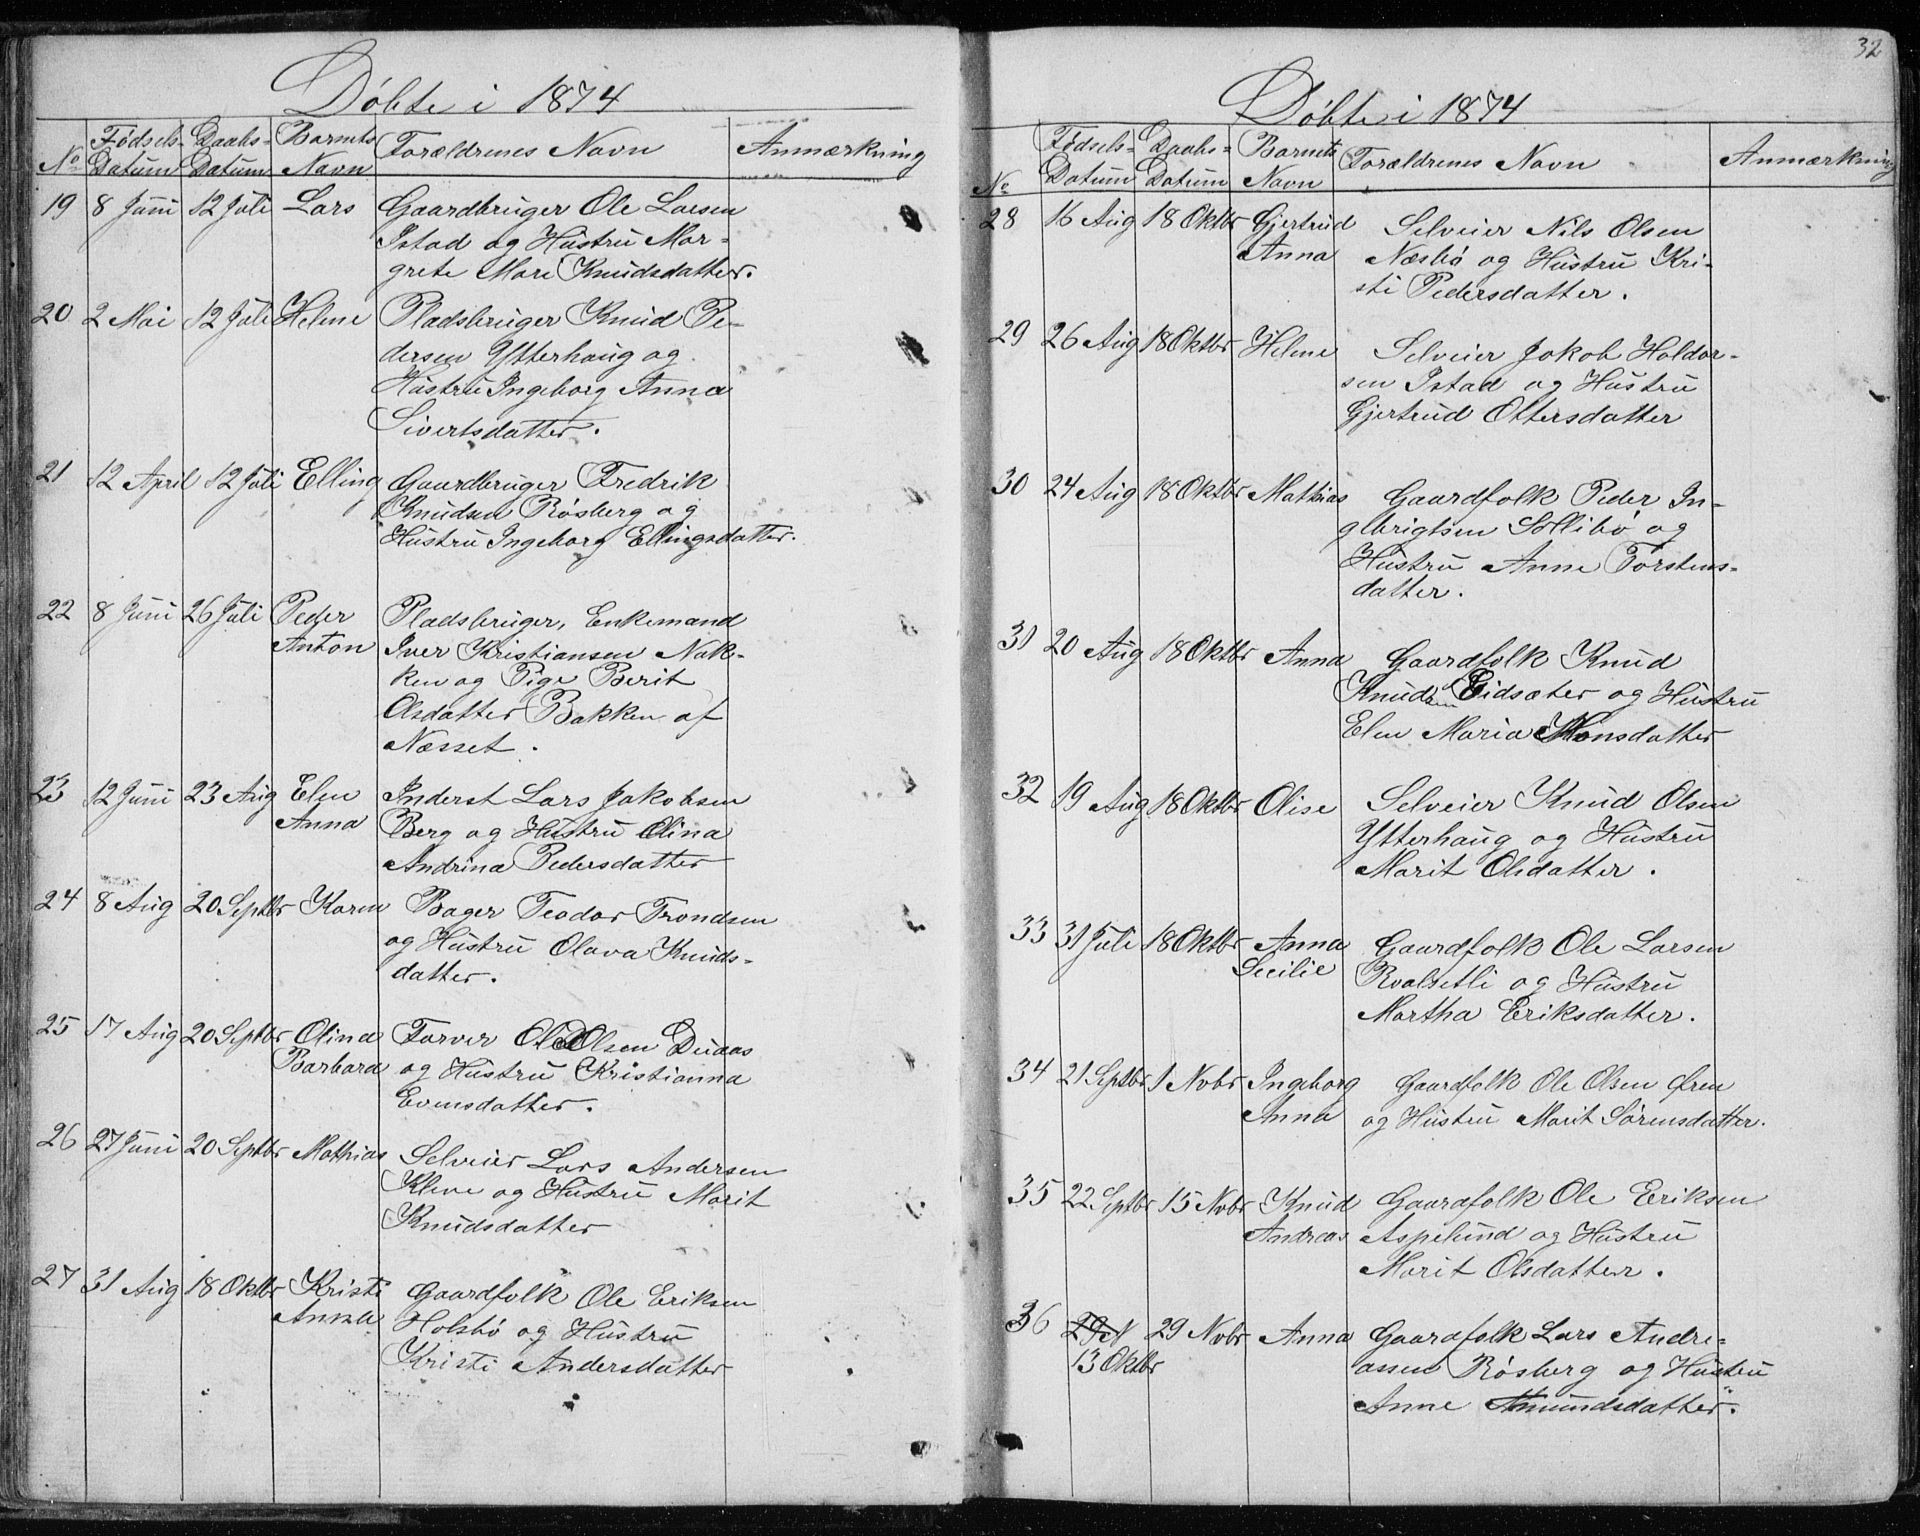 Døbte i 1874
No Fødsels- Datum Daabs- Datum Barnets Navn Forældrenes Navn Anmærkning
19 8 Juni 12 Juli Lars Gaardbruger Ole Larsen
Istad og Hustru Mar-
grete Mari Knudsdatter.
20 2 Mai 12 Juli Helene Pladsbruger Knud Pe-
dersen Ytterhaug og
Hustru Ingeborg Anna
Sivertsdatter.
21 12 April 12 Juli Elling Gaardbruger Fredrik
Knudsen Røsberg og
Hustru Ingeborg Ellingsdatter.
22 8 Juni 26 Juli Peder Pladsbruger, Enkemand
Anton Iver Kristiansen Nak-
ken og Pige Berit
Olsdatter Bakken af
Næsset.
23 12 Juni 23 Aug Elen Inderst Lars Jakobsen
Anna Berg og Hustru Olina
Andrina Pedersdatter
24 8 Aug 20 Septbr Karen Bager Teodor Trondsen
og Hustru Olava Knuds-
datter.
25 17 Aug 20 Septbr Olina Farver Ole Olsen Duaas
Barbara og Hustru Kristianna
Evensdatter.
26 27 Juni 20 Septbr Mathias Selveier Lars Andersen
Kleve og Hustru Marit
Knudsdatter
27 31 Aug 18 Oktbr Kristi Gaardfolk Ole Eriksen
Anna Holsbø og Hustru
Kristi Andersdatter
32
Døbte i 1874
No Fødsels- Datum Daabs- Datum Barnets Navn Forældrenes Navn Anmærkning
28 16 Aug 18 Oktbr Gjertrud Selveier Nils Olsen
Anna Næsbø og Hustru Kri-
sti Pedersdatter.
29 26 Aug 18 Oktbr Helene Selveier Jakob Haldor-
sen Istad og Hustru
Gjertrud Ottersdatter
30 24 Aug 18 Oktbr Mathias Gaardfolk Peder In-
gbrigtsen Sollibø og
Hustru Anne Torstens-
datter.
31 20 Aug 18 Oktbr Anna Gaardfolk Knud
Knudsen Eidsæter og Hustru
Elen Maria Monsdatter
32 19 Aug 18 Oktbr Olise Selveier Knud Olsen
Ytterhaug og Hustru
Marit Olsdatter.
33 31 Juli 18 Oktbr Anna Gaardfolk Ole Larsen
Secilie Rvalsetli og Hustru
Martha Eriksdatter.
34 21 Septbr 1 Novbr Ingeborg Gaardfolk Ole Olsen Øren
Anna og Hustru Marit Sørensdatter.
35 22 Septbr 15 Novbr Knud Gaardfolk Ole Eriksen
Andreas Aspelund og Hustru
Marit Olsdatter.
36 29 N 29 Novbr Anna Gaardfolk Lars Andre-
13 Oktbr assen Røsberg og Hustru
Anne Amundsdatter.